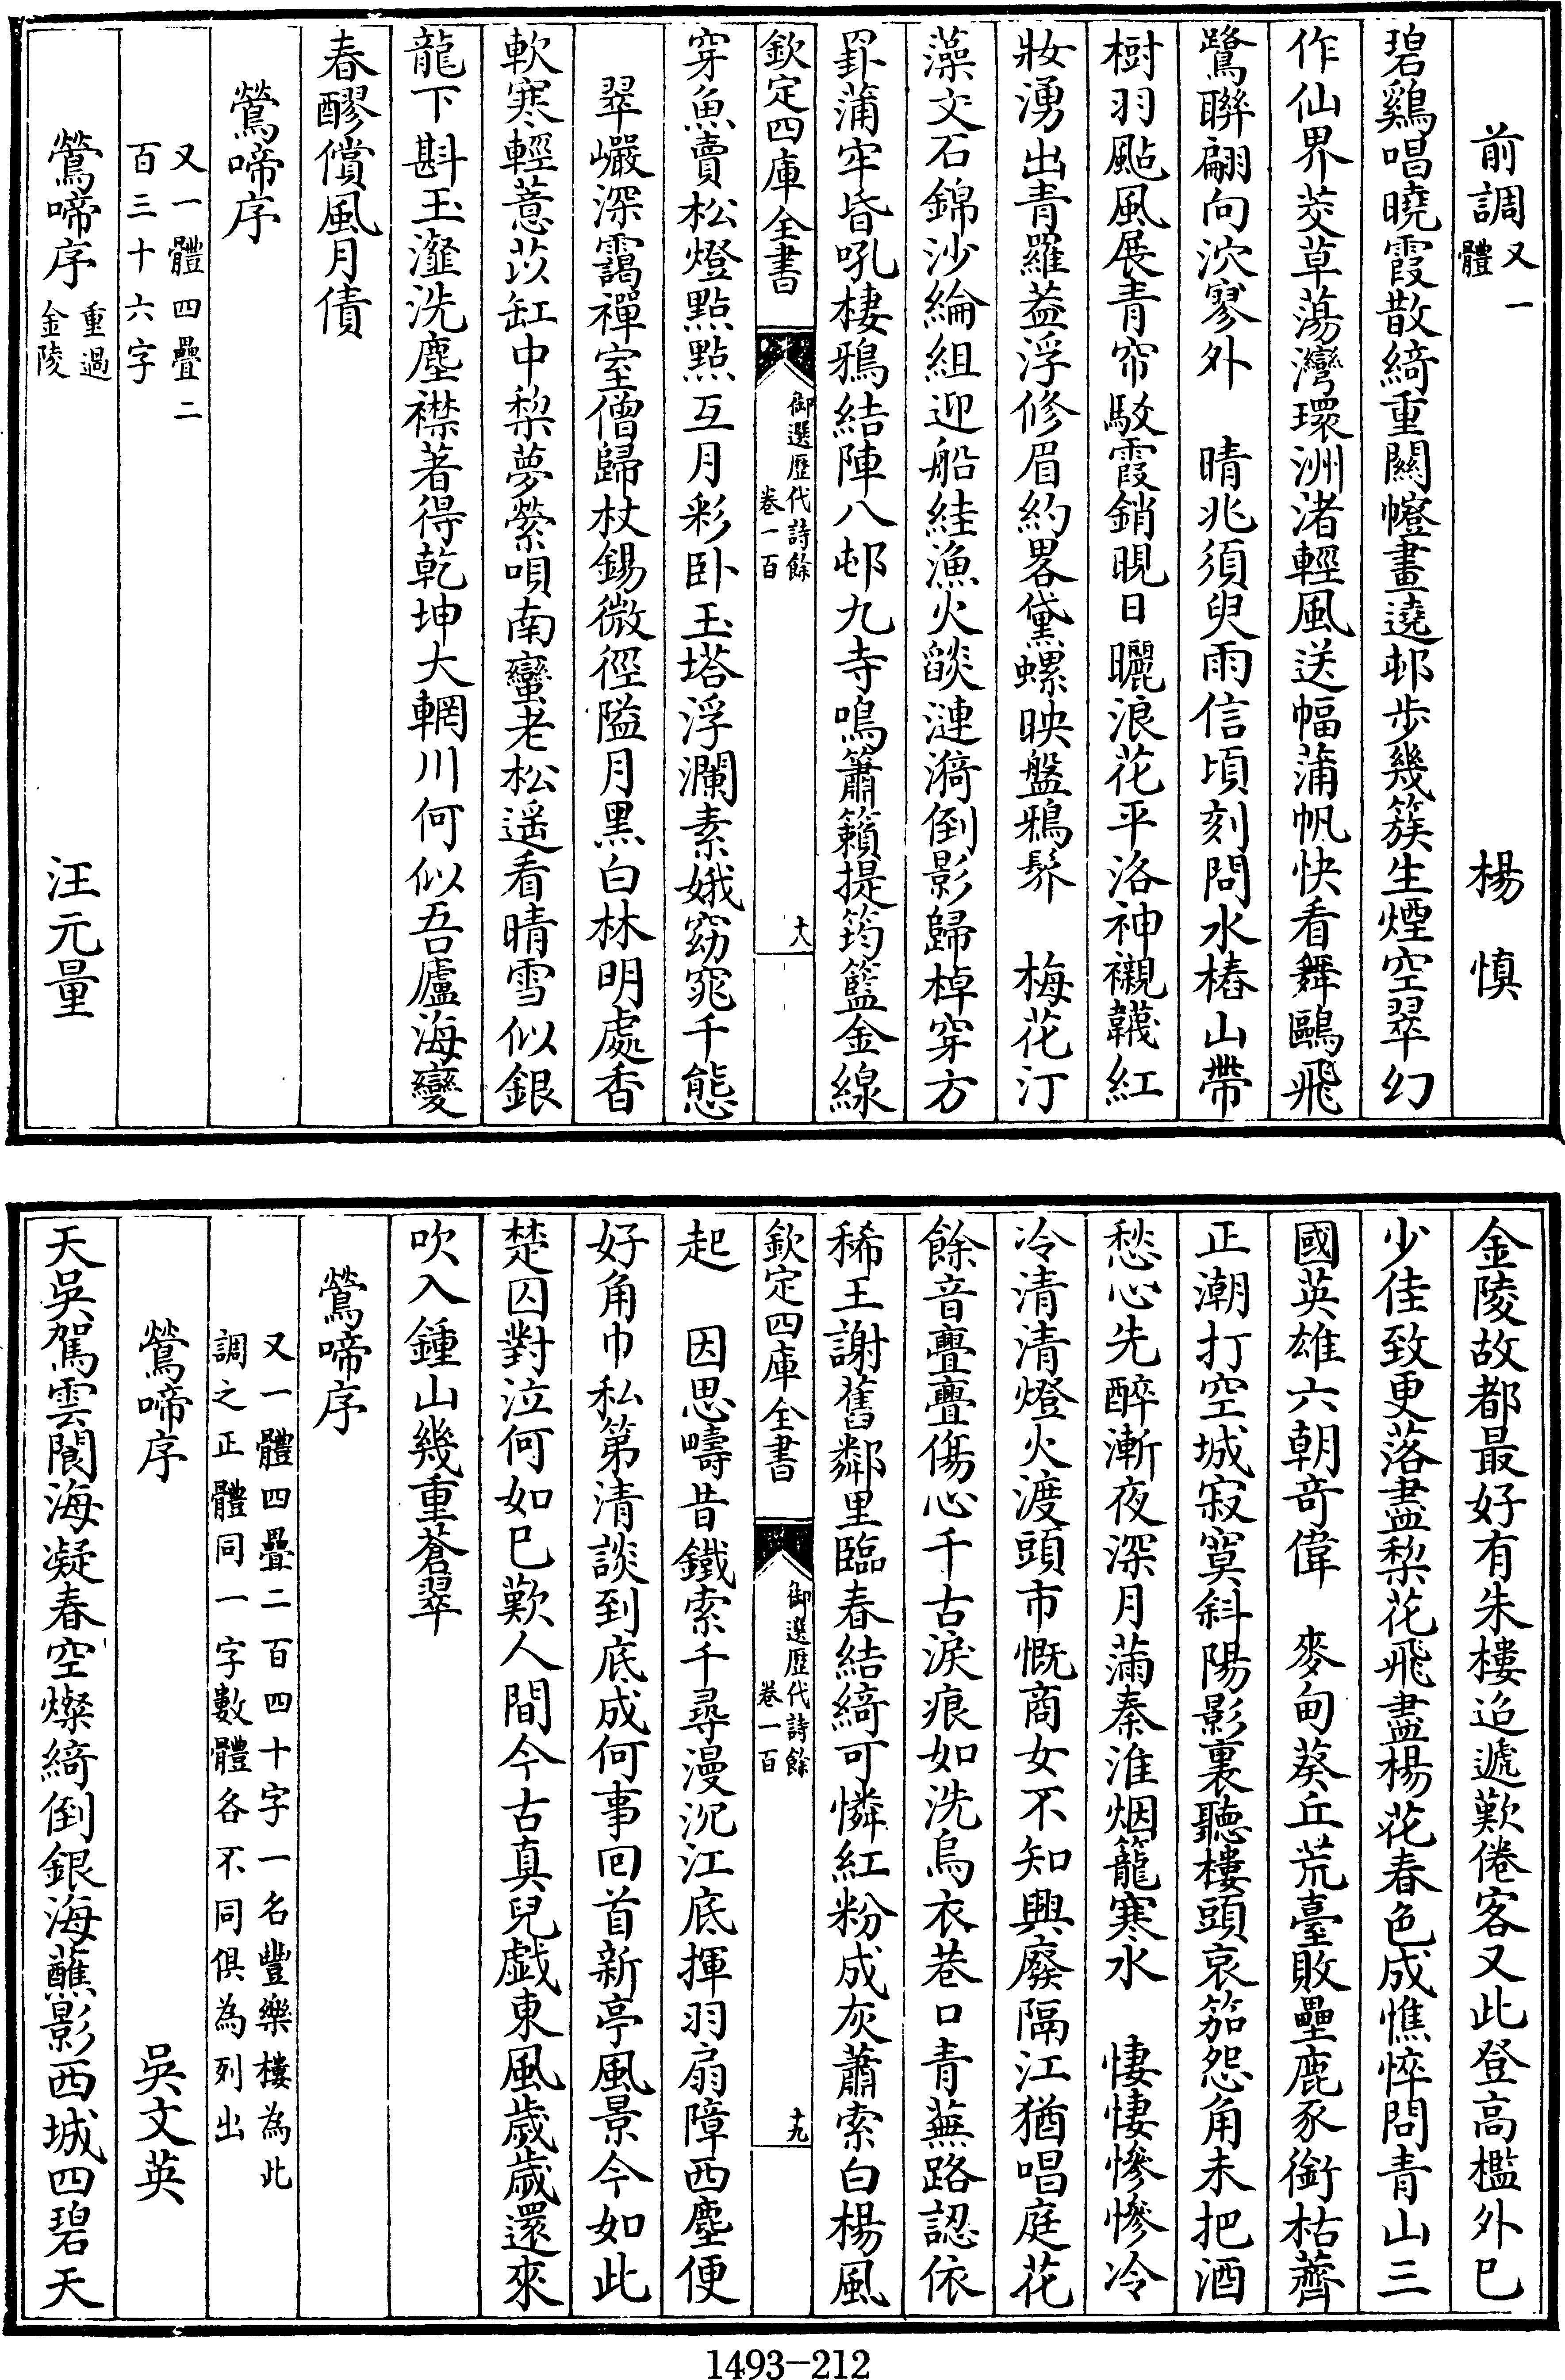 前調又一體　楊慎
碧鷄唱曉霞散綺重關幰畫遶邨步幾簇生煙空翠幻
作仙界茭草蕩灣環洲渚輕風送幅蒲帆快看舞鷗飛
鷺聯翩向泬寥外　晴兆須臾雨信頃刻問水樁山帶
樹羽颭風展青帘駮霞銷晛日曬浪花平洛神襯韈紅
妝湧出青羅葢浮修眉約畧黛螺映盤鴉髻　梅花汀
藻文石錦沙綸組迎船絓漁火燄漣漪倒影歸棹穿方
罫蒲牢昏吼棲鴉結陣八邨九寺鳴簫籟提筠籃金線
欽定四庫全書　御選歷代詩餘卷一百　十八
穿魚賣松燈點點互月彩卧玉塔浮瀾素娥窈窕千態
翠巘深靄禪室僧歸杖錫微徑隘月黑白林明處香
軟寒輕薏苡缸中棃夢縈唄南蠻老松遥看晴雪似銀
龍下斟玉瀣洗塵襟著得乾坤大輞川何似吾廬海變
春醪償風月債
鶯啼序
又一體四疊二
百三十六字
鶯啼序重過金陵　汪元量
金陵故都最好有朱樓迢遞歎倦客又此登高檻外已
少佳致更落盡棃花飛盡楊花春色成憔悴問青山三
國英雄六朝竒偉　麥甸葵丘荒臺敗壘鹿豕銜枯薺
正潮打空城寂寞斜陽影裏聽樓頭哀笳怨角未把酒
愁心先醉漸夜深月滿秦淮烟籠寒水　悽悽慘慘冷
冷清清燈火渡頭市慨商女不知興廢隔江猶唱庭花
餘音亹亹傷心千古淚痕如洗烏衣巷口青蕪路認依
稀王謝舊鄰里臨春結綺可憐紅粉成灰蕭索白楊風
欽定四庫全書　御選歷代詩餘卷一百　十九
起　因思疇昔鐵索千尋漫沉江底揮羽扇障西塵便
好角巾私第清談到底成何事回首新亭風景今如此
楚囚對泣何如已歎人間今古真兒戲東風歲歲還來
吹入鍾山幾重蒼翠
鶯啼序
又一體四疊二百四十字一名豐樂樓為此
調之正體同一字數體各不同俱為列出
鶯啼序　吳文英
天吳駕雲閬海凝春空燦綺倒銀海蘸影西城四碧天
1493–212